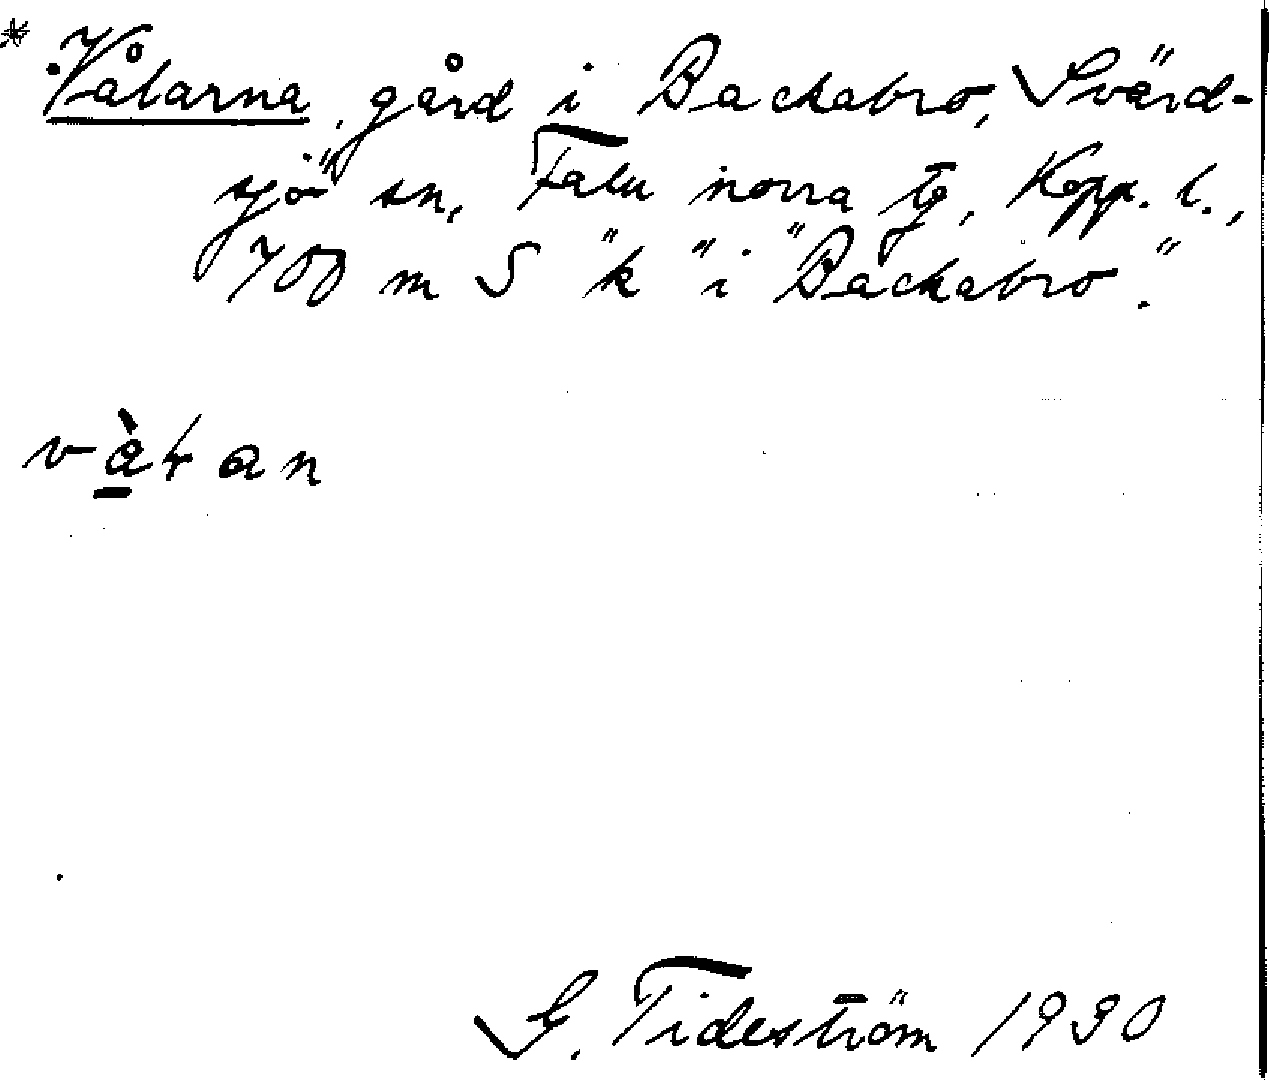 * Vålarna, gård i Backabro, Svärd-
sjö sn, Falu norra tg, Kopp. l.,
700 m S "k" i "Backabro".
vàɫan
G. Tideström 1930